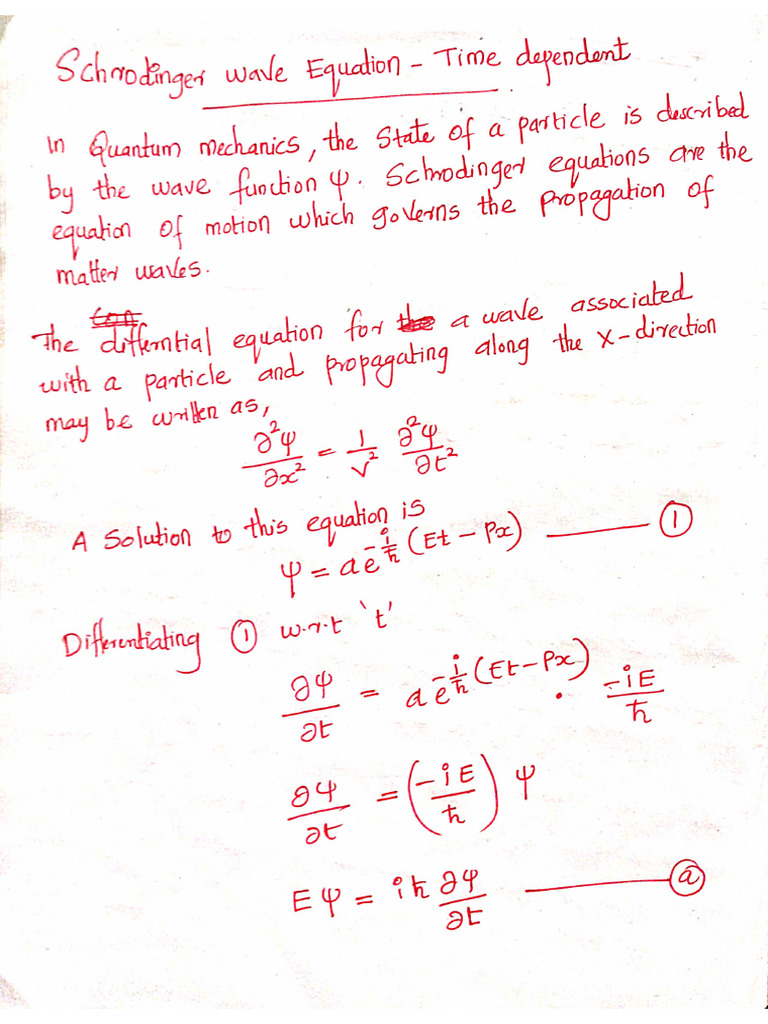 Schrodinger wave Equation - Time dependent
In Quantum mechanics, the State of a particle is described
by the wave function ψ. Schrodinger equations are the
equation of motion which governs the propagation of
matter waves.
The differntial equation for a wave associated
with a particle and propagating along the x-direction
may be written as,
∂²ψ/∂x² = 1/v² ∂²ψ/∂t²
A Solution to this equation is
ψ = ae^{-i/ħ (Et - Px)} ——— ①
Differentiating ① w.r.t 't'
∂ψ/∂t = ae^{-i/ħ (Et - Px)} · -iE/ħ
∂ψ/∂t = (-iE/ħ) ψ
Eψ = iħ ∂ψ/∂t ——— ⓐ